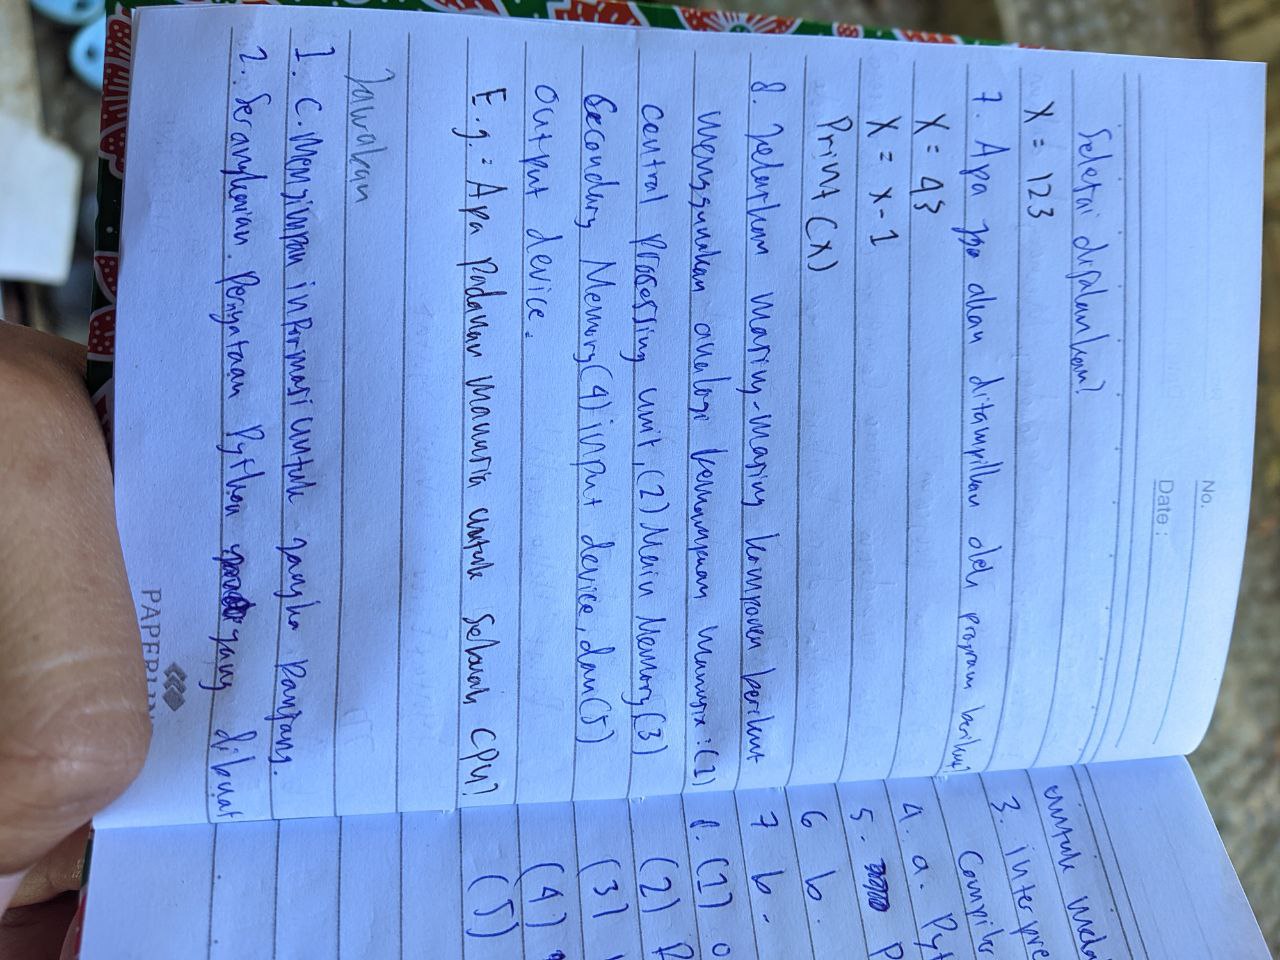 No.
Date :
Selesai dijalankan?
X = 123
7. Apa yg akan ditampilkan oleh program berikut?
X = 43
X = x-1
Print (x)
8. Jelaskan masing-masing komponen berikut
menggunakan analogi kemampuan manusia : (1)
central processing unit, (2) Main Memory (3)
Secondary Memory (4) input device, dan (5)
output device.
E.g. : Apa padanan manusia untuk sebuah CPU?
Jawakan
1. C. Menyimpan informasi untuk jangka panjang.
2. Serangkaian pernyataan Python yang dibuat
PAPERLIN
untuk
3. interpre
Compiler
4. a. Pyt
5. P
6 b.
7 b.
8. (1)
(2)
(3)
(4)
(5)